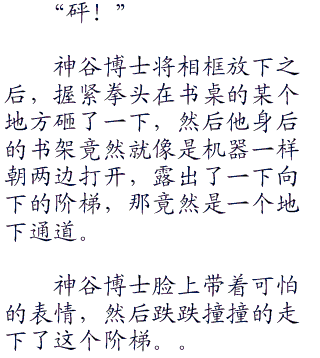 “砰！”
神谷博士将相框放下之
后，握紧拳头在书桌的某个
地方砸了一下，然后他身后
的书架竟然就像是机器一样
朝两边打开，露出了一下向
下的阶梯，那竟然是一个地
下通道。
神谷博士脸上带着可怕
的表情，然后跌跌撞撞的走
下了这个阶梯。。